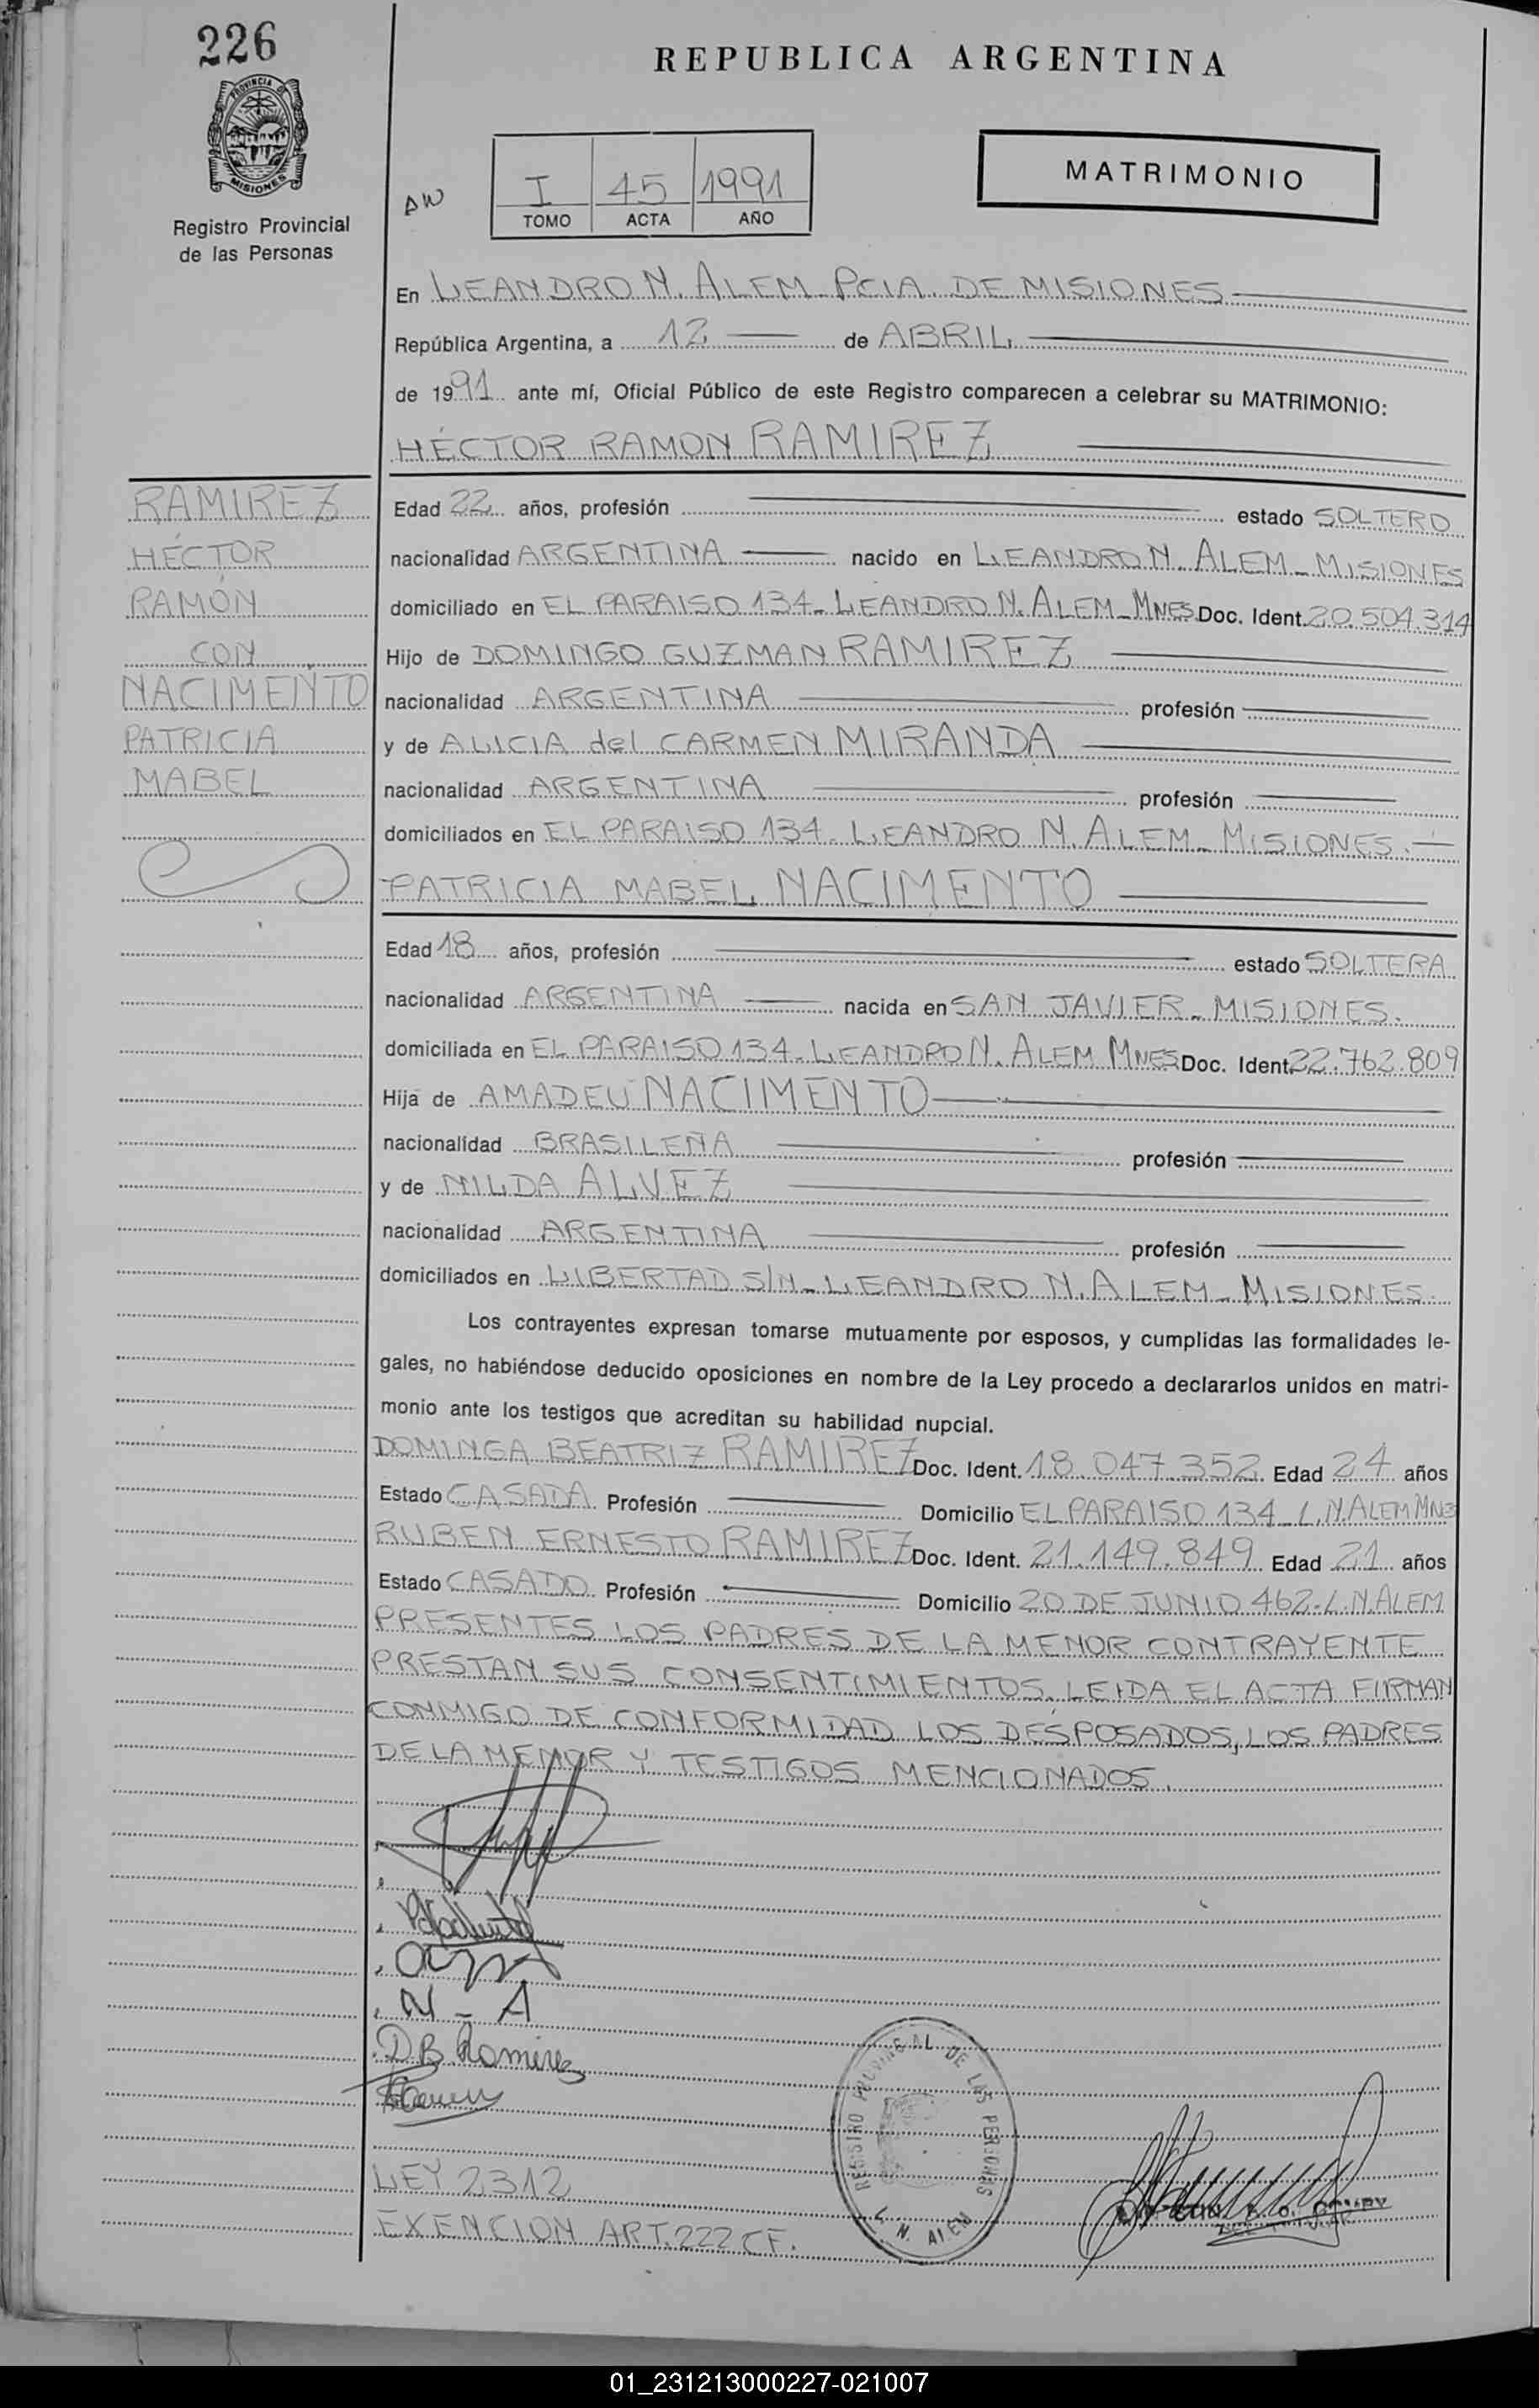 226
REPUBLICA ARGENTINA
PROVINCIA DE
MISIONES
Registro Provincial
de las Personas
AW
I 45 1991
TOMO ACTA AÑO
MATRIMONIO
En LEANDRO N. ALEM PCIA. DE MISIONES
República Argentina, a 12 de ABRIL
de 1991 ante mí, Oficial Público de este Registro comparecen a celebrar su MATRIMONIO:
HÉCTOR RAMON RAMIREZ
RAMIREZ
HÉCTOR
RAMÓN
CON
NACIMENTO
PATRICIA
MABEL
Edad 22 años, profesión estado SOLTERO
nacionalidad ARGENTINA nacido en LEANDRO N. ALEM - MISIONES
domiciliado en EL PARAISO 134 - LEANDRO N. ALEM - MNES Doc. Ident. 20.504.314
Hijo de DOMINGO GUZMAN RAMIREZ
nacionalidad ARGENTINA profesión
y de ALICIA del CARMEN MIRANDA
nacionalidad ARGENTINA profesión
domiciliados en EL PARAISO 134 - LEANDRO N. ALEM - MISIONES.
PATRICIA MABEL NACIMENTO
Edad 18 años, profesión estado SOLTERA
nacionalidad ARGENTINA nacida en SAN JAVIER - MISIONES.
domiciliada en EL PARAISO 134 - LEANDRO N. ALEM MNES Doc. Ident. 22.762.809
Hija de AMADEU NACIMENTO
nacionalidad BRASILEÑA profesión
y de NILDA ALVEZ
nacionalidad ARGENTINA profesión
domiciliados en LIBERTAD S/N - LEANDRO N. ALEM - MISIONES.
Los contrayentes expresan tomarse mutuamente por esposos, y cumplidas las formalidades le-
gales, no habiéndose deducido oposiciones en nombre de la Ley procedo a declararlos unidos en matri-
monio ante los testigos que acreditan su habilidad nupcial.
DOMINGA BEATRIZ RAMIREZ Doc. Ident. 18.047.352 Edad 24 años
Estado CASADA Profesión Domicilio EL PARAISO 134 - L.N. ALEM MNES
RUBEN ERNESTO RAMIREZ Doc. Ident. 21.149.849 Edad 21 años
Estado CASADO Profesión Domicilio 20 DE JUNIO 462 - L.N. ALEM
PRESENTES LOS PADRES DE LA MENOR CONTRAYENTE
PRESTAN SUS CONSENTIMIENTOS. LEIDA EL ACTA FIRMAN
CONMIGO DE CONFORMIDAD LOS DESPOSADOS, LOS PADRES
DE LA MENOR Y TESTIGOS MENCIONADOS.
N - A
D B Ramirez
REGISTRO PROVINCIAL DE LAS PERSONAS
L. N. ALEM
LEY 2312
EXENCION ART. 222 CF.
01_231213000227-021007